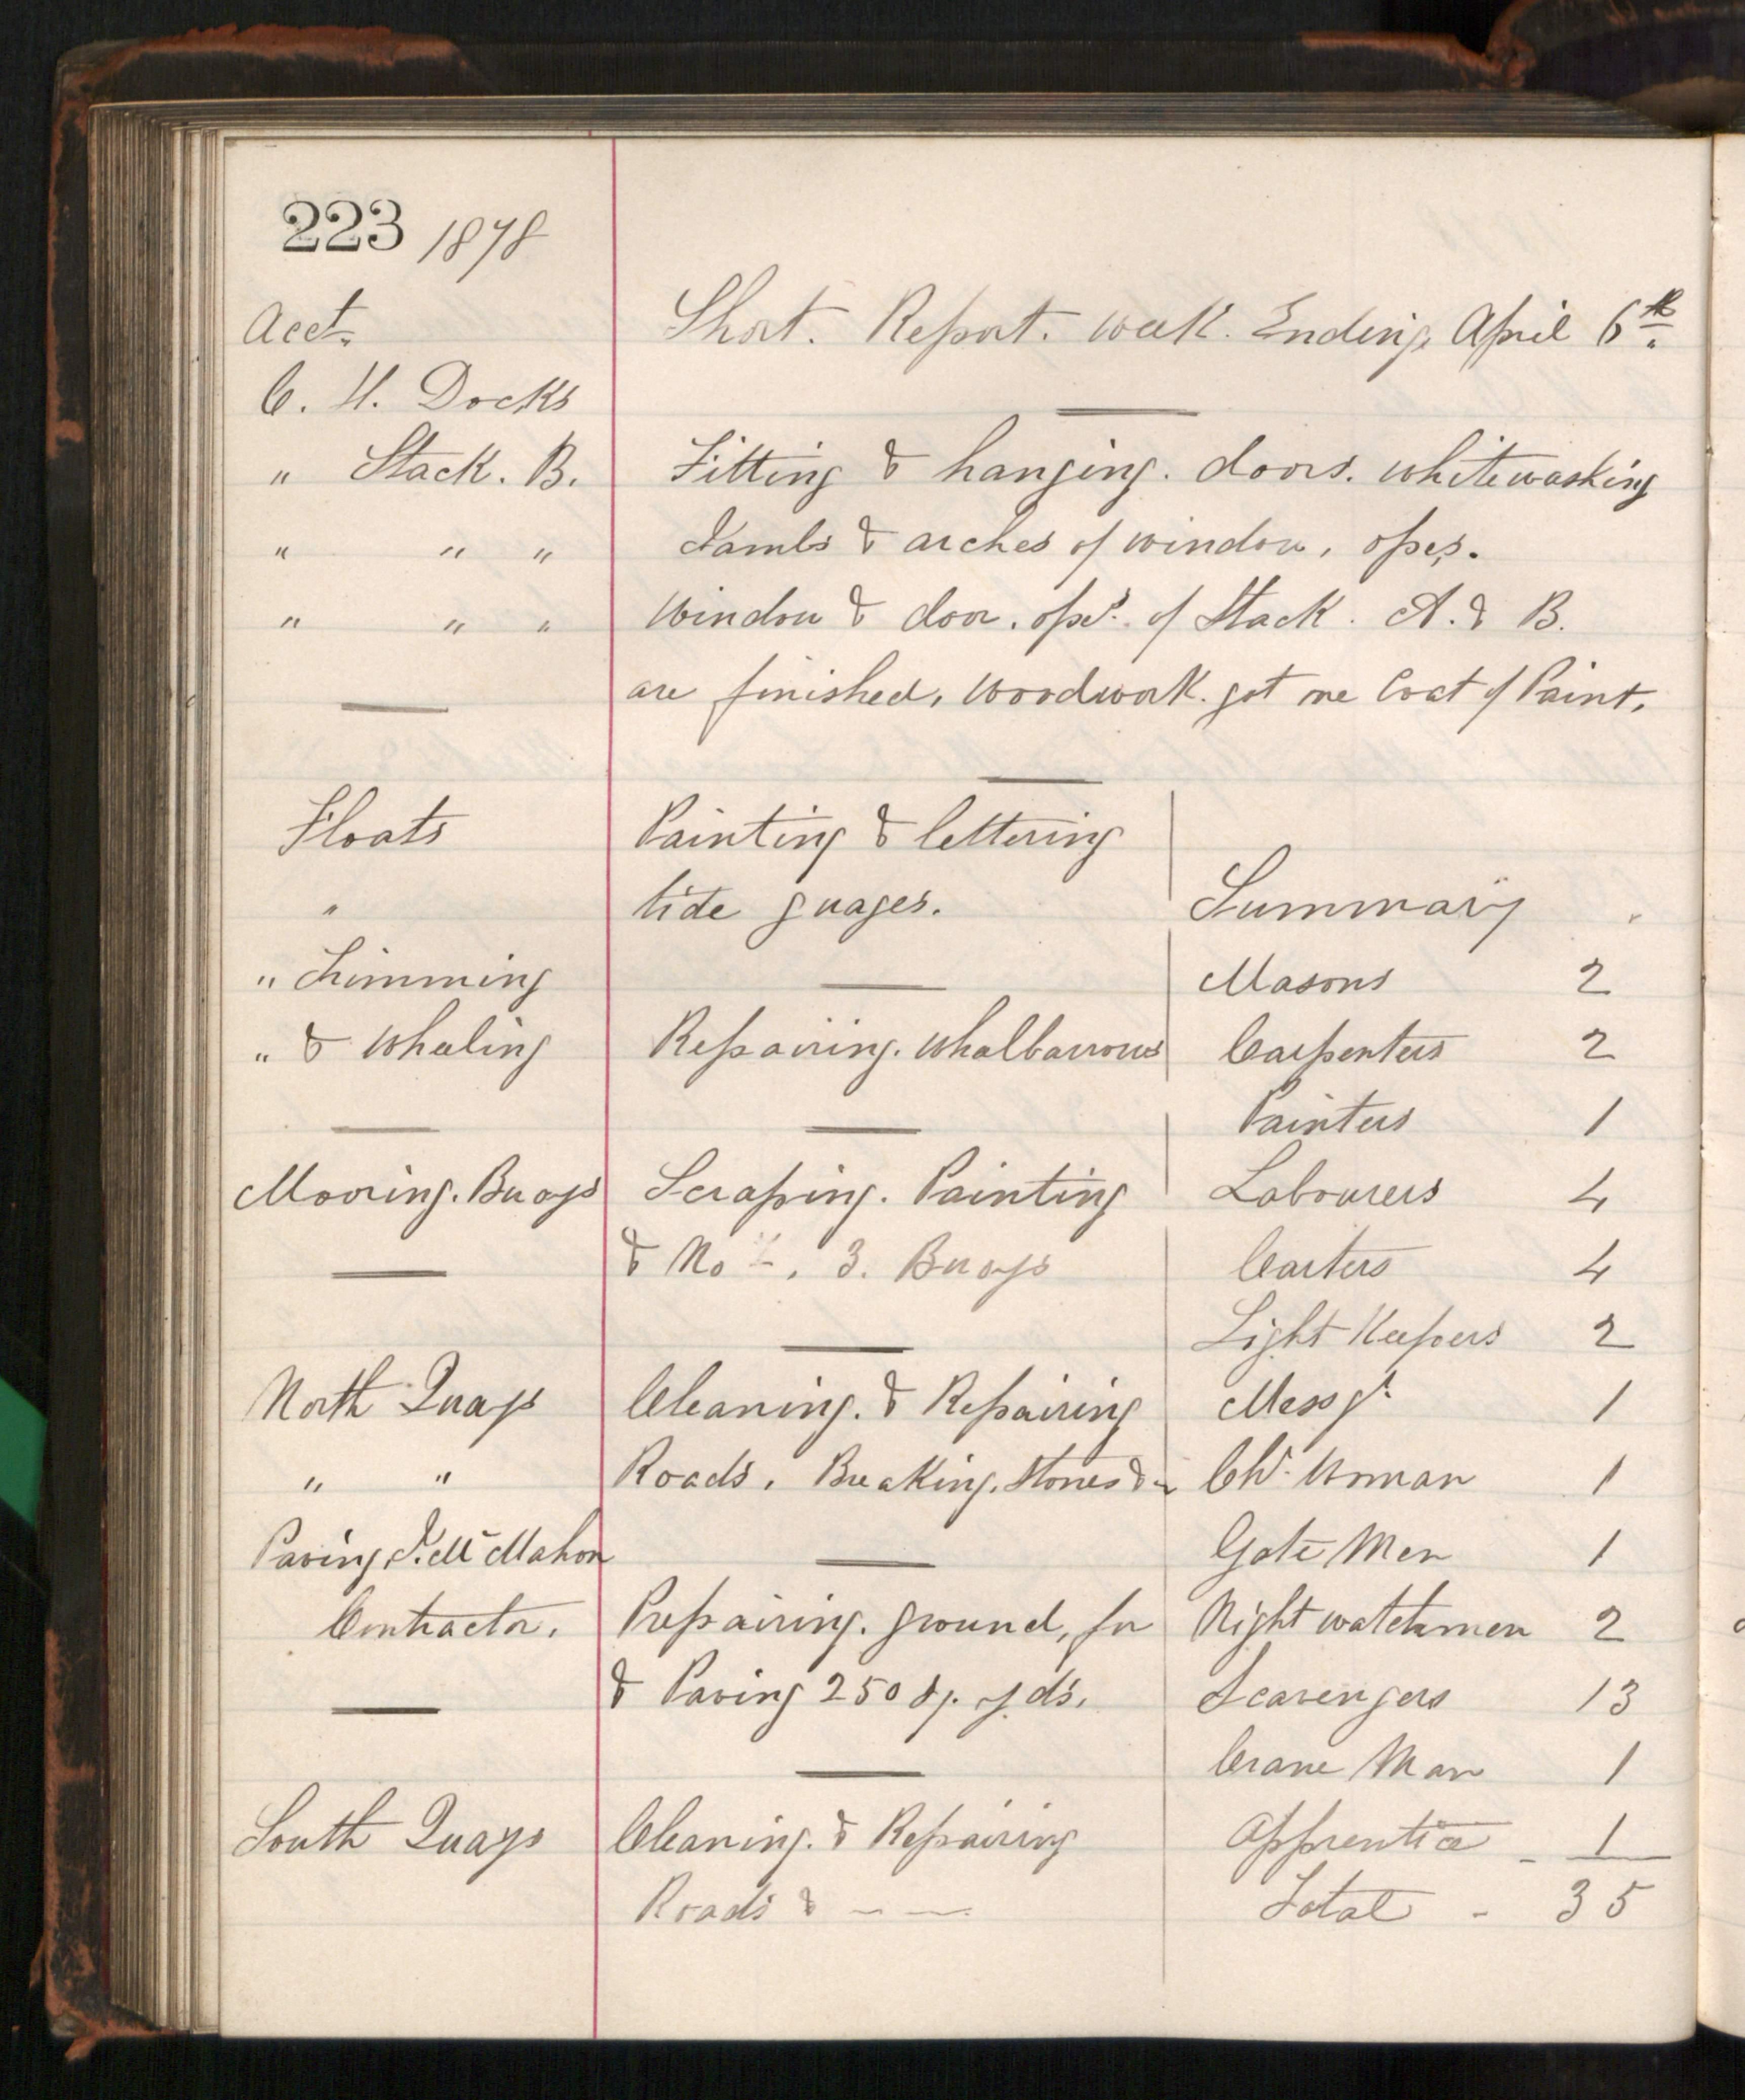 223 1878
Acct.
Short. Report. week. Ending, April 6th.
C. H. Docks
" Stack. B. Fitting & hanging. doors. whitewashing
" " " Jambs & arches of window, opes.
" " " Window & door. opes. of Stack. A. & B.
are finished, Woodwork. got one Coat of Paint.
Floats Painting & lettering
" tide guages.
" Trimming
" & wheeling Repairing. wheelbarrows
Mooring. Buoys Scraping. Painting
& No 3. Buoys
North Quays Cleaning. & Repairing
" " Roads. Breaking. Stones &
Paving, J. McMahon
Contractor. Prepairing. ground, for
& Paving 250 sq. yds.
South Quays Cleaning. & Repairing
Roads &
Summary
Masons 2
Carpenters 2
Painters 1
Labourers 4
Carters 4
Light Keepers 2
Messgr 1
Ch. Woman 1
Gate Men 1
Night watchmen 2
Scavengers 13
Crane Man 1
Apprentice - 1
Total - 35